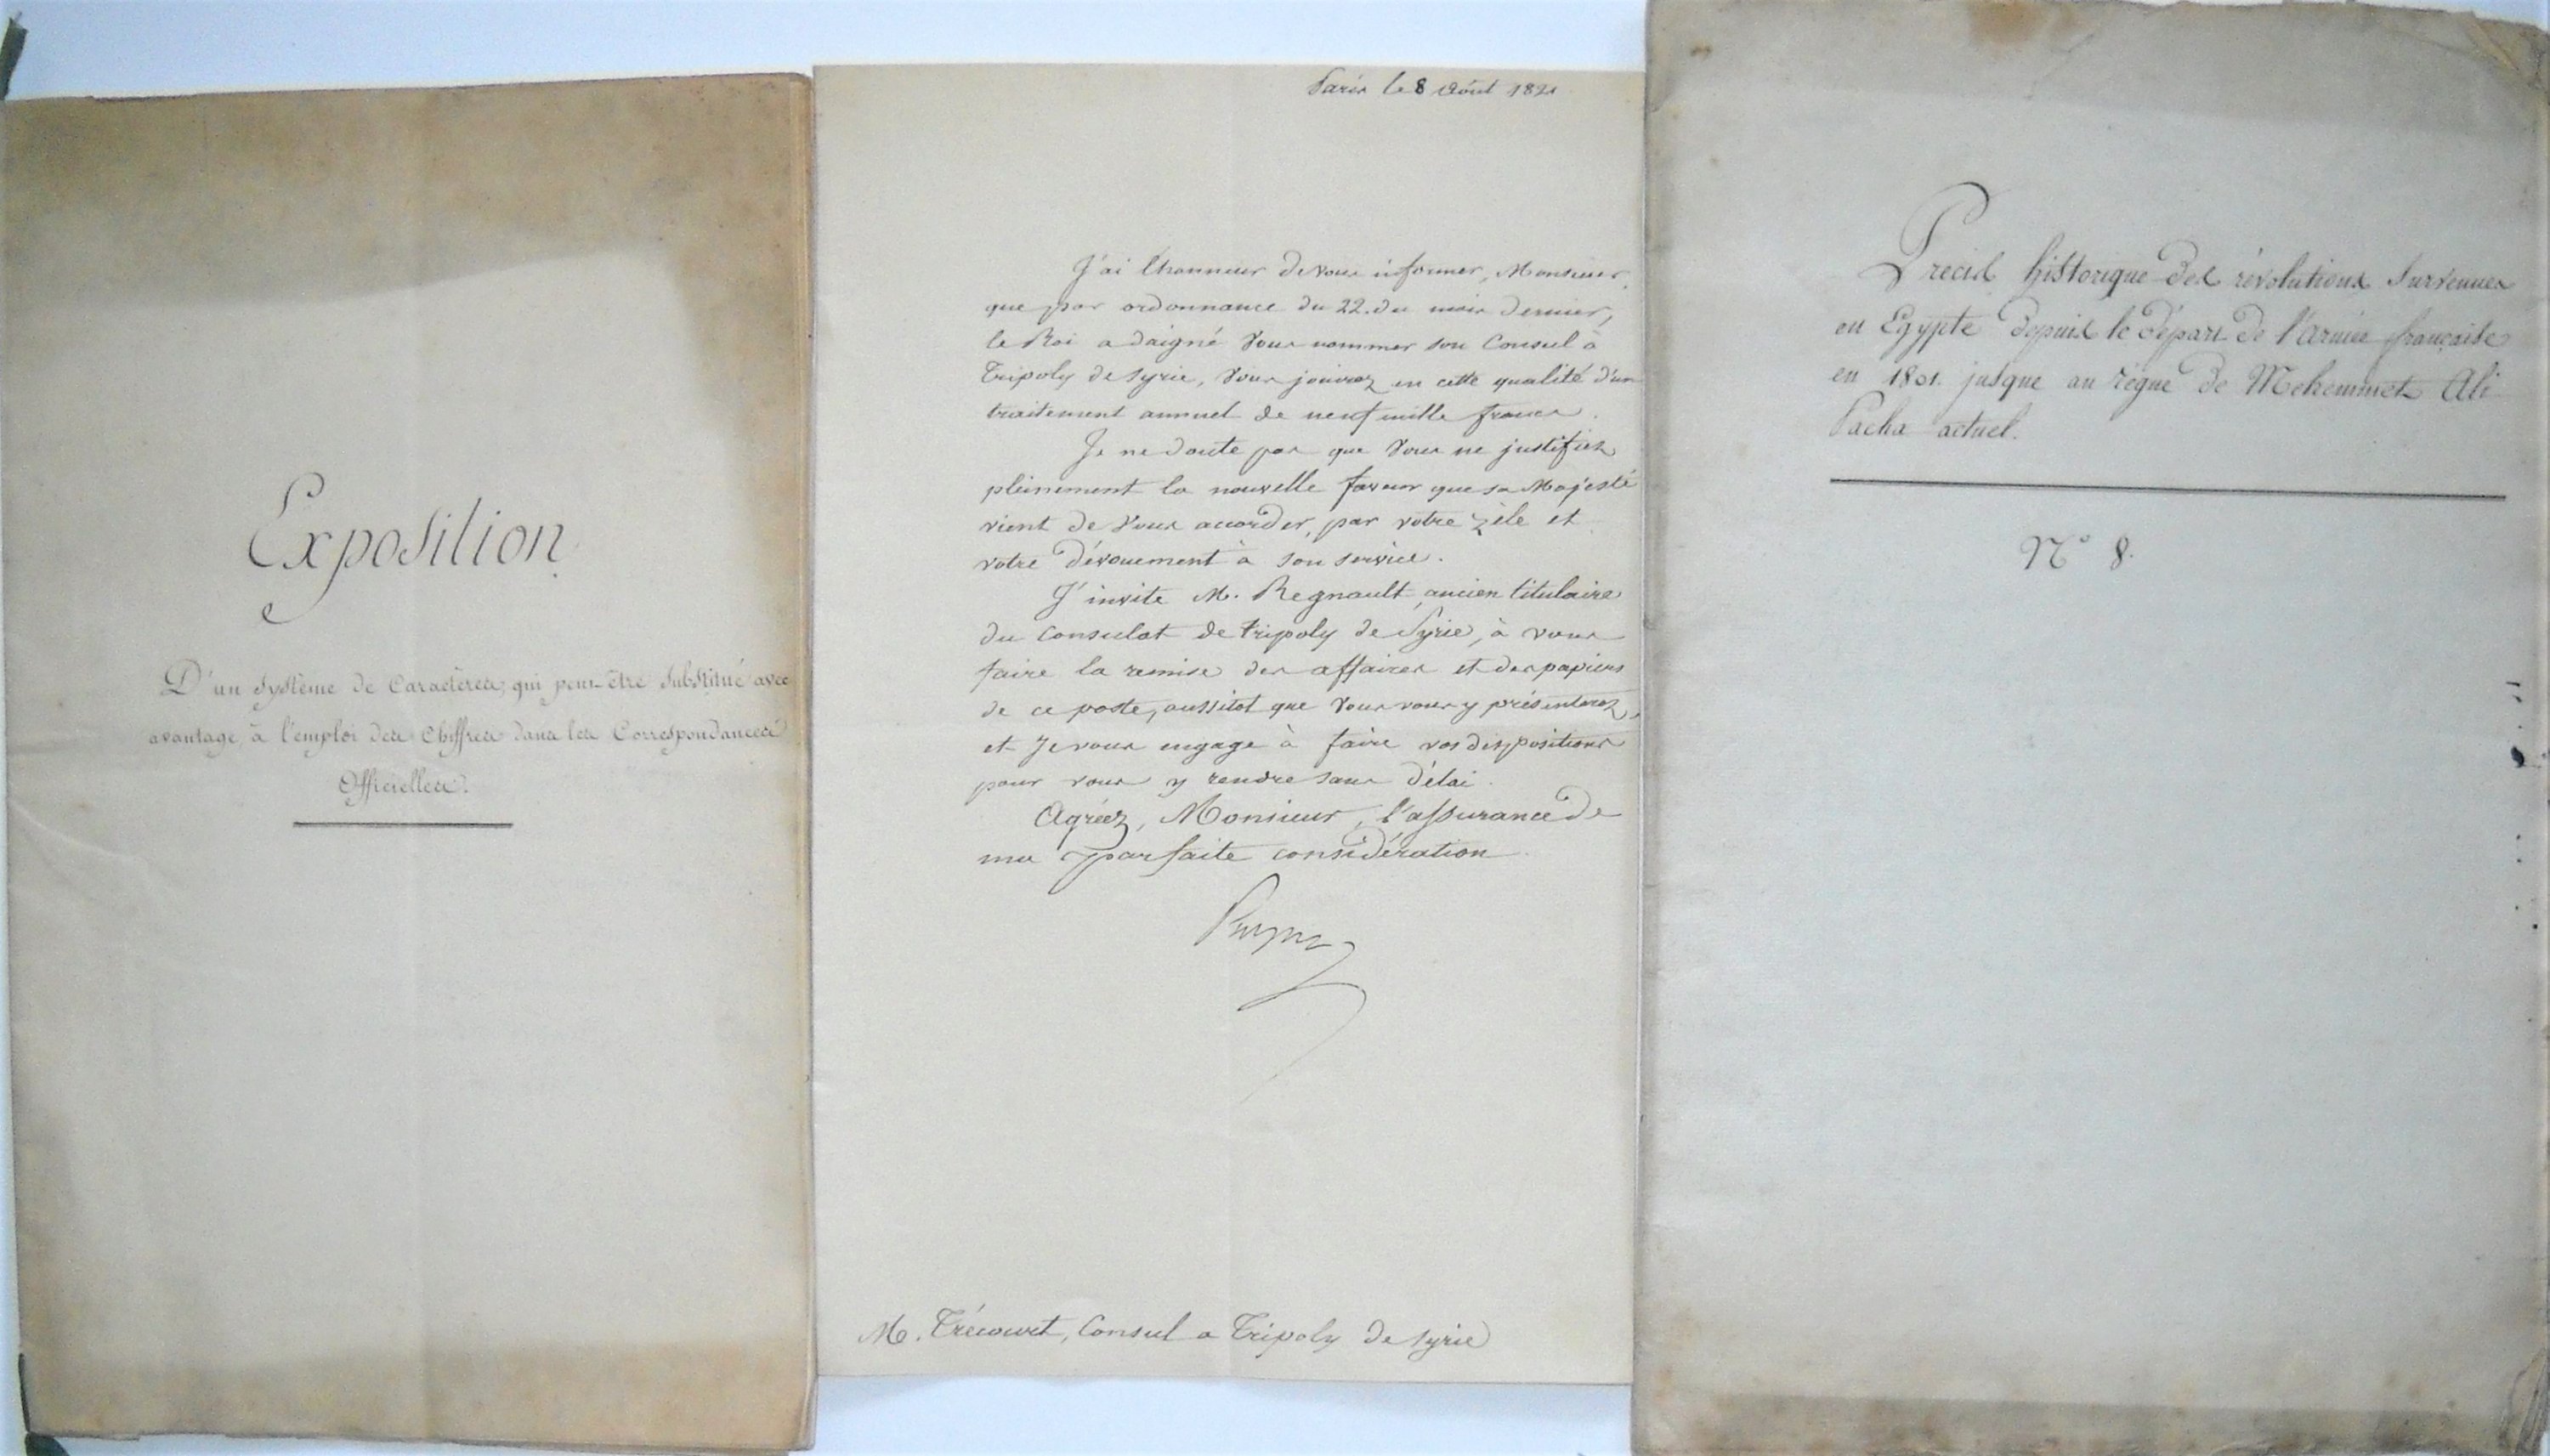 Exposition
D'un Systême de Caractères, qui peut-être Substitué avec
avantage, à l'emploi des Chiffres dans les Correspondances
Officielles.
Paris le 8 Août 1821
J'ai l'honneur de vous informer, Monsieur,
que par ordonnance du 22. du mois dernier,
le Roi a daigné vous nommer son Consul à
Tripoly de Syrie, vous jouirez en cette qualité d'un
traitement annuel de neuf mille francs.
Je ne doute pas que vous ne justifiez
pleinement la nouvelle faveur que sa Majesté
vient de vous accorder, par votre zèle et
votre dévouement à son service.
J'invite M. Regnault, ancien titulaire
du Consulat de tripoly de Syrie, à vous
faire la remise des affaires et des papiers
de ce poste, aussitot que vous vous y présenterez,
et Je vous engage à faire vos dispositions
pour vous y rendre sans délai.
Agréez, Monsieur, l'assurance de
ma parfaite considération
M. Trécourt, Consul a Tripoly de Syrie
Precis historique des révolutions Survenues
en Egypte depuis le départ de l'armée française
en 1801. jusque au règne de Mehemmet Ali
Pacha actuel.
N° 8.